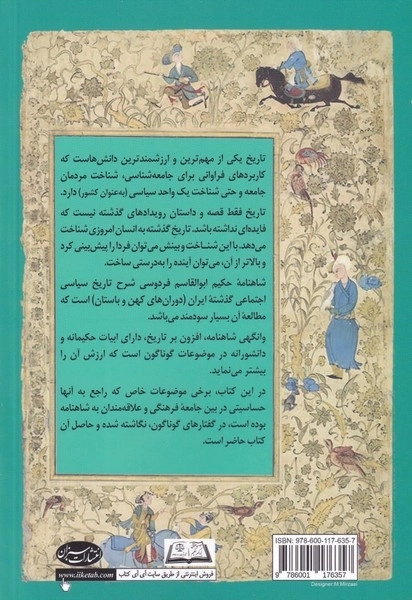 تاریخ یکی از مهم‌ترین و ارزشمندترین دانش‌هاست که
کاربردهای فراوانی برای جامعه‌شناسی، شناخت مردمان
جامعه و حتی شناخت یک واحد سیاسی (به‌عنوان کشور) دارد.
تاریخ فقط قصه و داستان رویدادهای گذشته نیست که
فایده‌ای نداشته باشد. تاریخ گذشته به انسان امروزی شناخت
می‌دهد. با این شناخت وبینش می‌توان فردا را پیش‌بینی کرد
و بالاتر از آن، می‌توان آینده را به‌درستی ساخت.
شاهنامهٔ حکیم ابوالقاسم فردوسی شرح تاریخ سیاسی
اجتماعی گذشتهٔ ایران (دوران‌های کهن و باستان) است که
مطالعهٔ آن بسیار سودمند می‌باشد.
وانگهی شاهنامه، افزون بر تاریخ، دارای ابیات حکیمانه و
دانشورانه در موضوعات گوناگون است که ارزش آن را
بیشتر می‌نماید.
در این کتاب، برخی موضوعات خاص که راجع به آنها
حساسیتی در بین جامعهٔ فرهنگی و علاقه‌مندان به شاهنامه
بوده است، در گفتارهای گوناگون، نگاشته شده و حاصل آن
کتاب حاضر است.
ISBN: 978-600-117-635-7
9 786001 176357
Designer:M.Mirzaei
انتشارات میزان
www.iiketab.com
فروش اینترنتی از طریق سایت آی آی کتاب